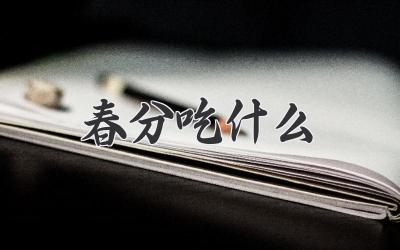 春分吃什么